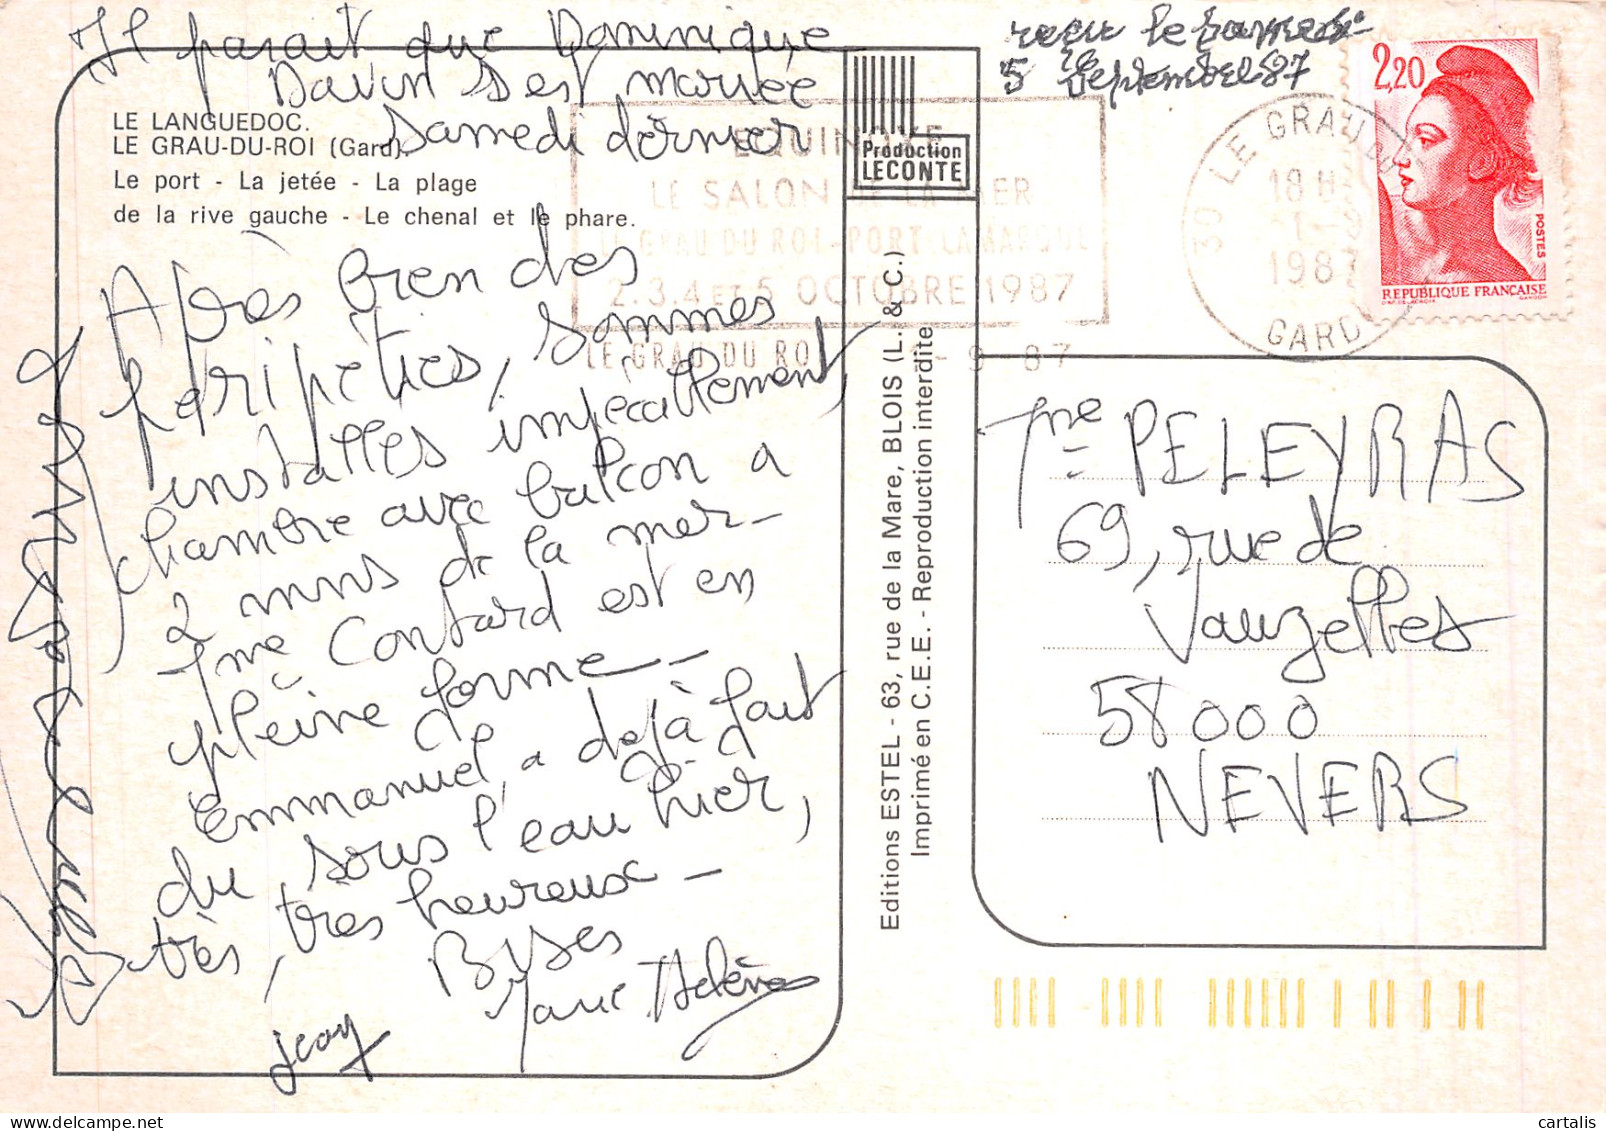 Il parait que Dominique
Davin s'est mariée
samedi dernier
LE LANGUEDOC.
LE GRAU-DU-ROI (Gard).
Le port - La jetée - La plage
de la rive gauche - Le chenal et le phare.
Après bien des
péripéties, sommes
installés impécablement,
chambre avec balcon a
2 mns de la mer -
Mme Contard est en
pleine forme -
Emmanuel, a déjà fait
du sous l'eau hier,
très, très heureux -
Bises
Marie Hélène
Jeay
Production
LECONTE
Editions ESTEL - 63, rue de la Mare, BLOIS (L. & C.)
Imprimé en C.E.E. - Reproduction interdite
reçu le samedi
5 septembre 87
EQUINOXE
LE SALON DE LA MER
LE GRAU DU ROI-PORT CAMARGUE
2.3.4 ET 5 OCTOBRE 1987
LE GRAU DU ROI 1-9 87
30 LE GRAU DU
18 H
1-
1987
GARD
2,20
POSTES
REPUBLIQUE FRANÇAISE
Mme PELEYRAS
69, rue de
Vauzelles
58000
NEVERS
cartalis.com